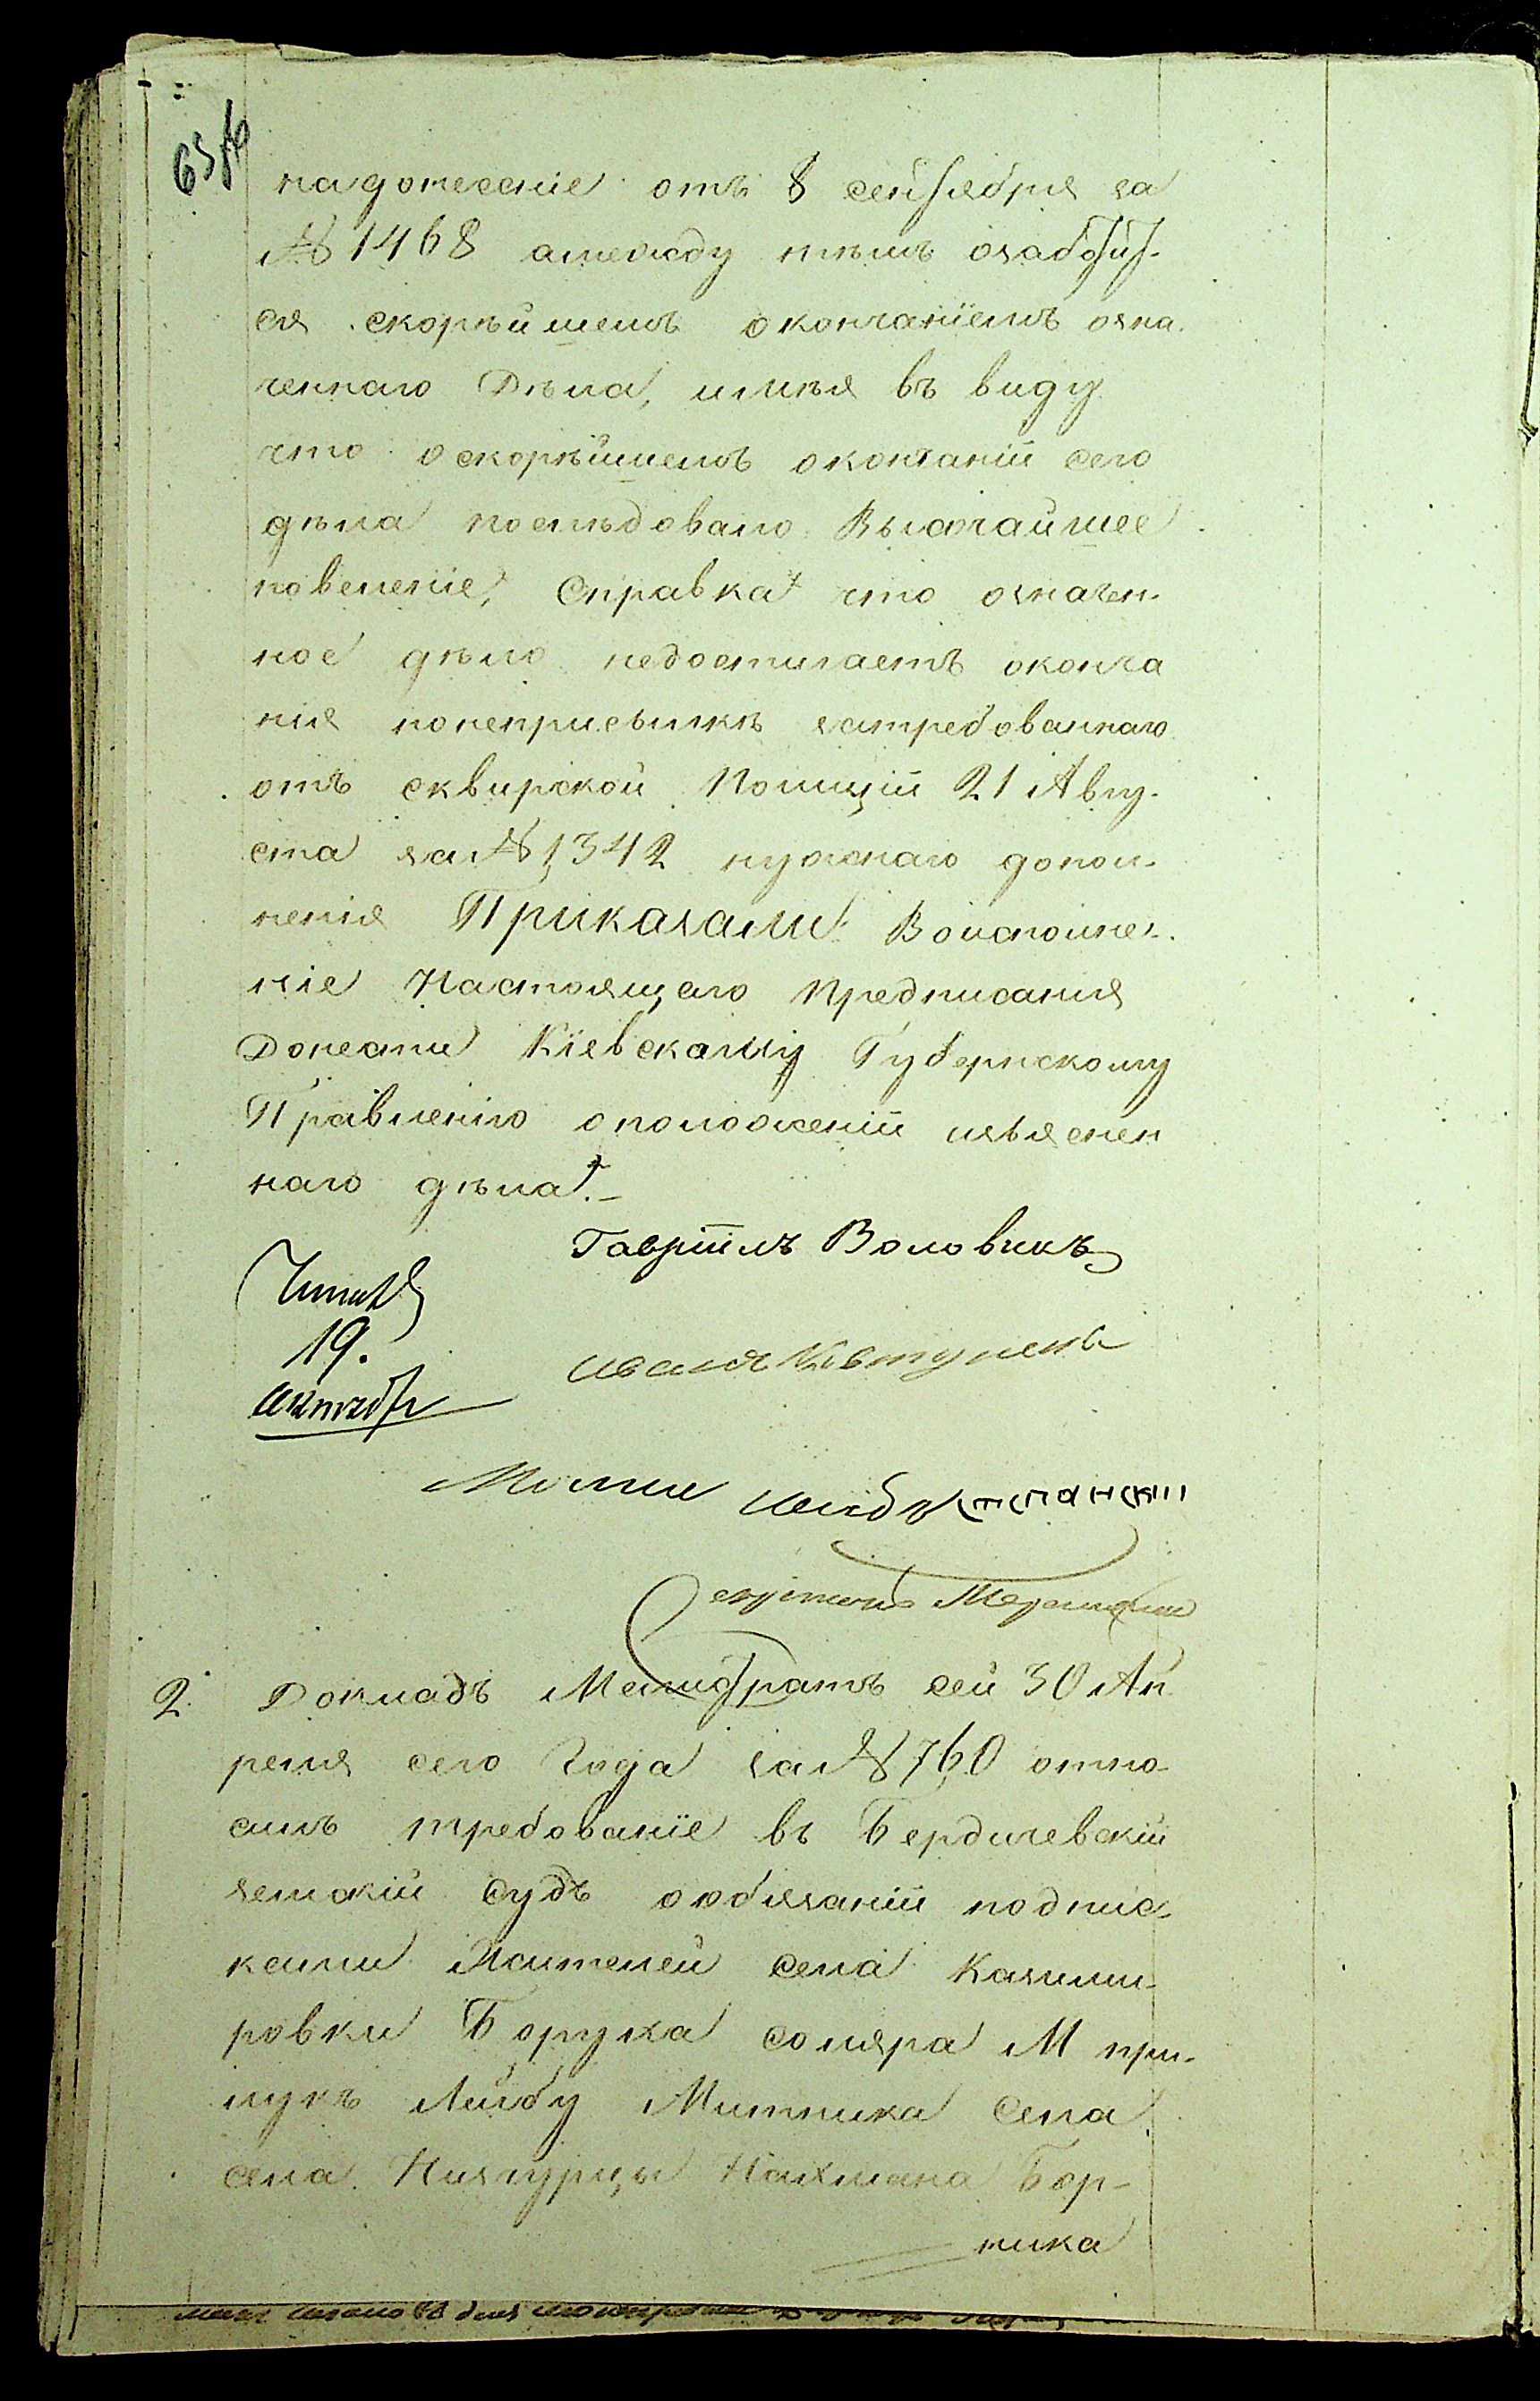 на донесеніе отъ 8 сентября за
№ 1468 а между тѣмъ озаботит-
ся скорѣйшемъ окончаніемъ озна-
ченнаго Дѣла, имѣя въ виду
что о скорѣйшемъ окончаніи сего
дѣла послѣдовало Высочайшее
повеленіе, Справка что означен-
ное дѣло недостигаетъ оконча
нія понеприсылкѣ затребованнаго
отъ сквирской Полиціи 21 Авгу-
ста за № 1342 нужнаго допол-
ненія Приказали Воисполне-
ніе Настоящаго Предписанія
Донести Кіевскому Губернскому
Правленію о положеніи изъяснен
наго дѣла.-
Гавріилъ Воловикъ
Читалъ
19.
октяб
Иванъ Ковтуненъ
Мошко Лейбъ
2. Докладъ Магистратъ сей 30 Ап
реля сего Года за № 760 отно-
силъ требованіе въ Бердичевскій
земскій Судъ о обязаніи подпис-
ками Жителей села Казими-
ровки Боруха соляра М при-
лукъ Лейбу Митника Села
села Низгурцы Нахмана Бор-
ника